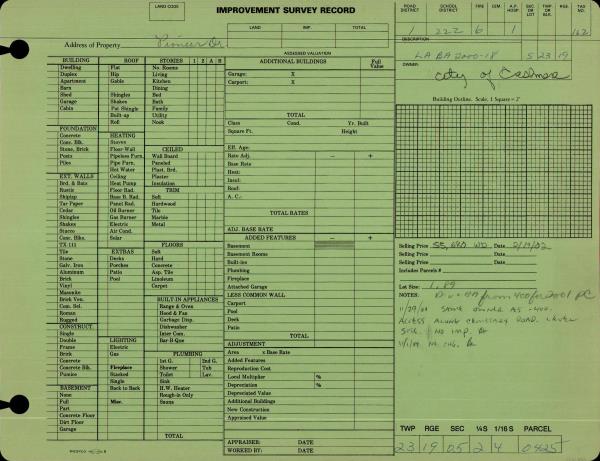 LAND CODE
IMPROVEMENT SURVEY RECORD
ROAD DISTRICT
SCHOOL DISTRICT
FIRE
CEM.
A.P. HOSP.
SEC. OR LOT
TWP. OR BLK.
RGE.
TAX NO.
222 6 1 162
LAND IMP. TOTAL
Address of Property Pioneer Dr.
DESCRIPTION
5 23 19
ASSESSED VALUATION
OWNER:
City of
BUILDING
Dwelling
Duplex
Apartment
Barn
Shed
Garage
Cabin
FOUNDATION
Concrete
Conc. Blk.
Stone, Brick
Posts
Piles
EXT. WALLS
Brd. & Bats
Rustic
Shiplap
Tar Paper
Cedar
Shingles
Shakes
Stucco
Conc. Blks.
TX 111
Tile
Stone
Galv. Iron
Aluminum
Brick
Vinyl
Masonite
Brick Ven.
Com. Sel.
Roman
Rugged
CONSTRUCT.
Single
Double
Frame
Brick
Concrete
Concrete Blk.
Pumice
BASEMENT
None
Full
Part
Concrete Floor
Dirt Floor
Garage
ROOF
Flat
Hip
Gable
Shingles
Shakes
Pat. Shingle
Built-up
Roll
HEATING
Stoves
Floor-Wall
Pipeless Furn.
Pipe Furn.
Hot Water
Ceiling
Heat Pump
Floor Rad.
Base B. Rad.
Panel Rad.
Oil Burner
Gas Burner
Electric
Air Cond.
Solar
EXTRAS
Decks
Porches
Patio
Pool
LIGHTING
Electric
Gas
Fireplace
Stacked
Single
Back to Back
Misc.
STORIES 1 2 A B
No. Rooms
Living
Kitchen
Dining
Bed
Bath
Family
Utility
Nook
CEILED
Wall Board
Paneled
Plast. Brd.
Plaster
Insulation
TRIM
Soft
Hardwood
Tile
Marble
Metal
FLOORS
Soft
Hard
Concrete
Asp. Tile
Linoleum
Carpet
BUILT-IN APPLIANCES
Range & Oven
Hood & Fan
Garbage Disp.
Dishwasher
Inter Com.
Bar-B-Que
PLUMBING
1st G. 2nd G.
Shower Tub
Toilet Lav.
Sink
H.W. Heater
Rough-in Only
Sauna
TOTAL
ADDITIONAL BUILDINGS Full Value
Garage: X
Carport: X
TOTAL
Class Cond. Yr. Built
Square Ft. Height
Eff. Age:
Rate Adj. − +
Base Rate
Heat:
Insul:
Roof:
A. C.:
TOTAL RATES
ADJ. BASE RATE
ADDED FEATURES − +
Basement
Basement Rooms
Built-ins
Plumbing
Fireplace
Attached Garage
LESS COMMON WALL
Carport
Pool
Deck
Patio
TOTAL
ADJUSTMENT
Area x Base Rate
Added Features
Reproduction Cost
Local Multiplier %
Depreciation %
Depreciated Value
Additional Buildings
New Construction
Appraised Value
APPRAISER: DATE
WORKED BY: DATE
Building Outline. Scale, 1 Square = 2'
Selling Price 55,690 WD Date 2/19/02
Selling Price Date
Selling Price Date
Includes Parcels #
Lot Size: 1.89
NOTES: from 400 for 2001 PC
No imp.
TWP RGE SEC ¼S 1/16 S PARCEL
23 19 05 2 4 0425